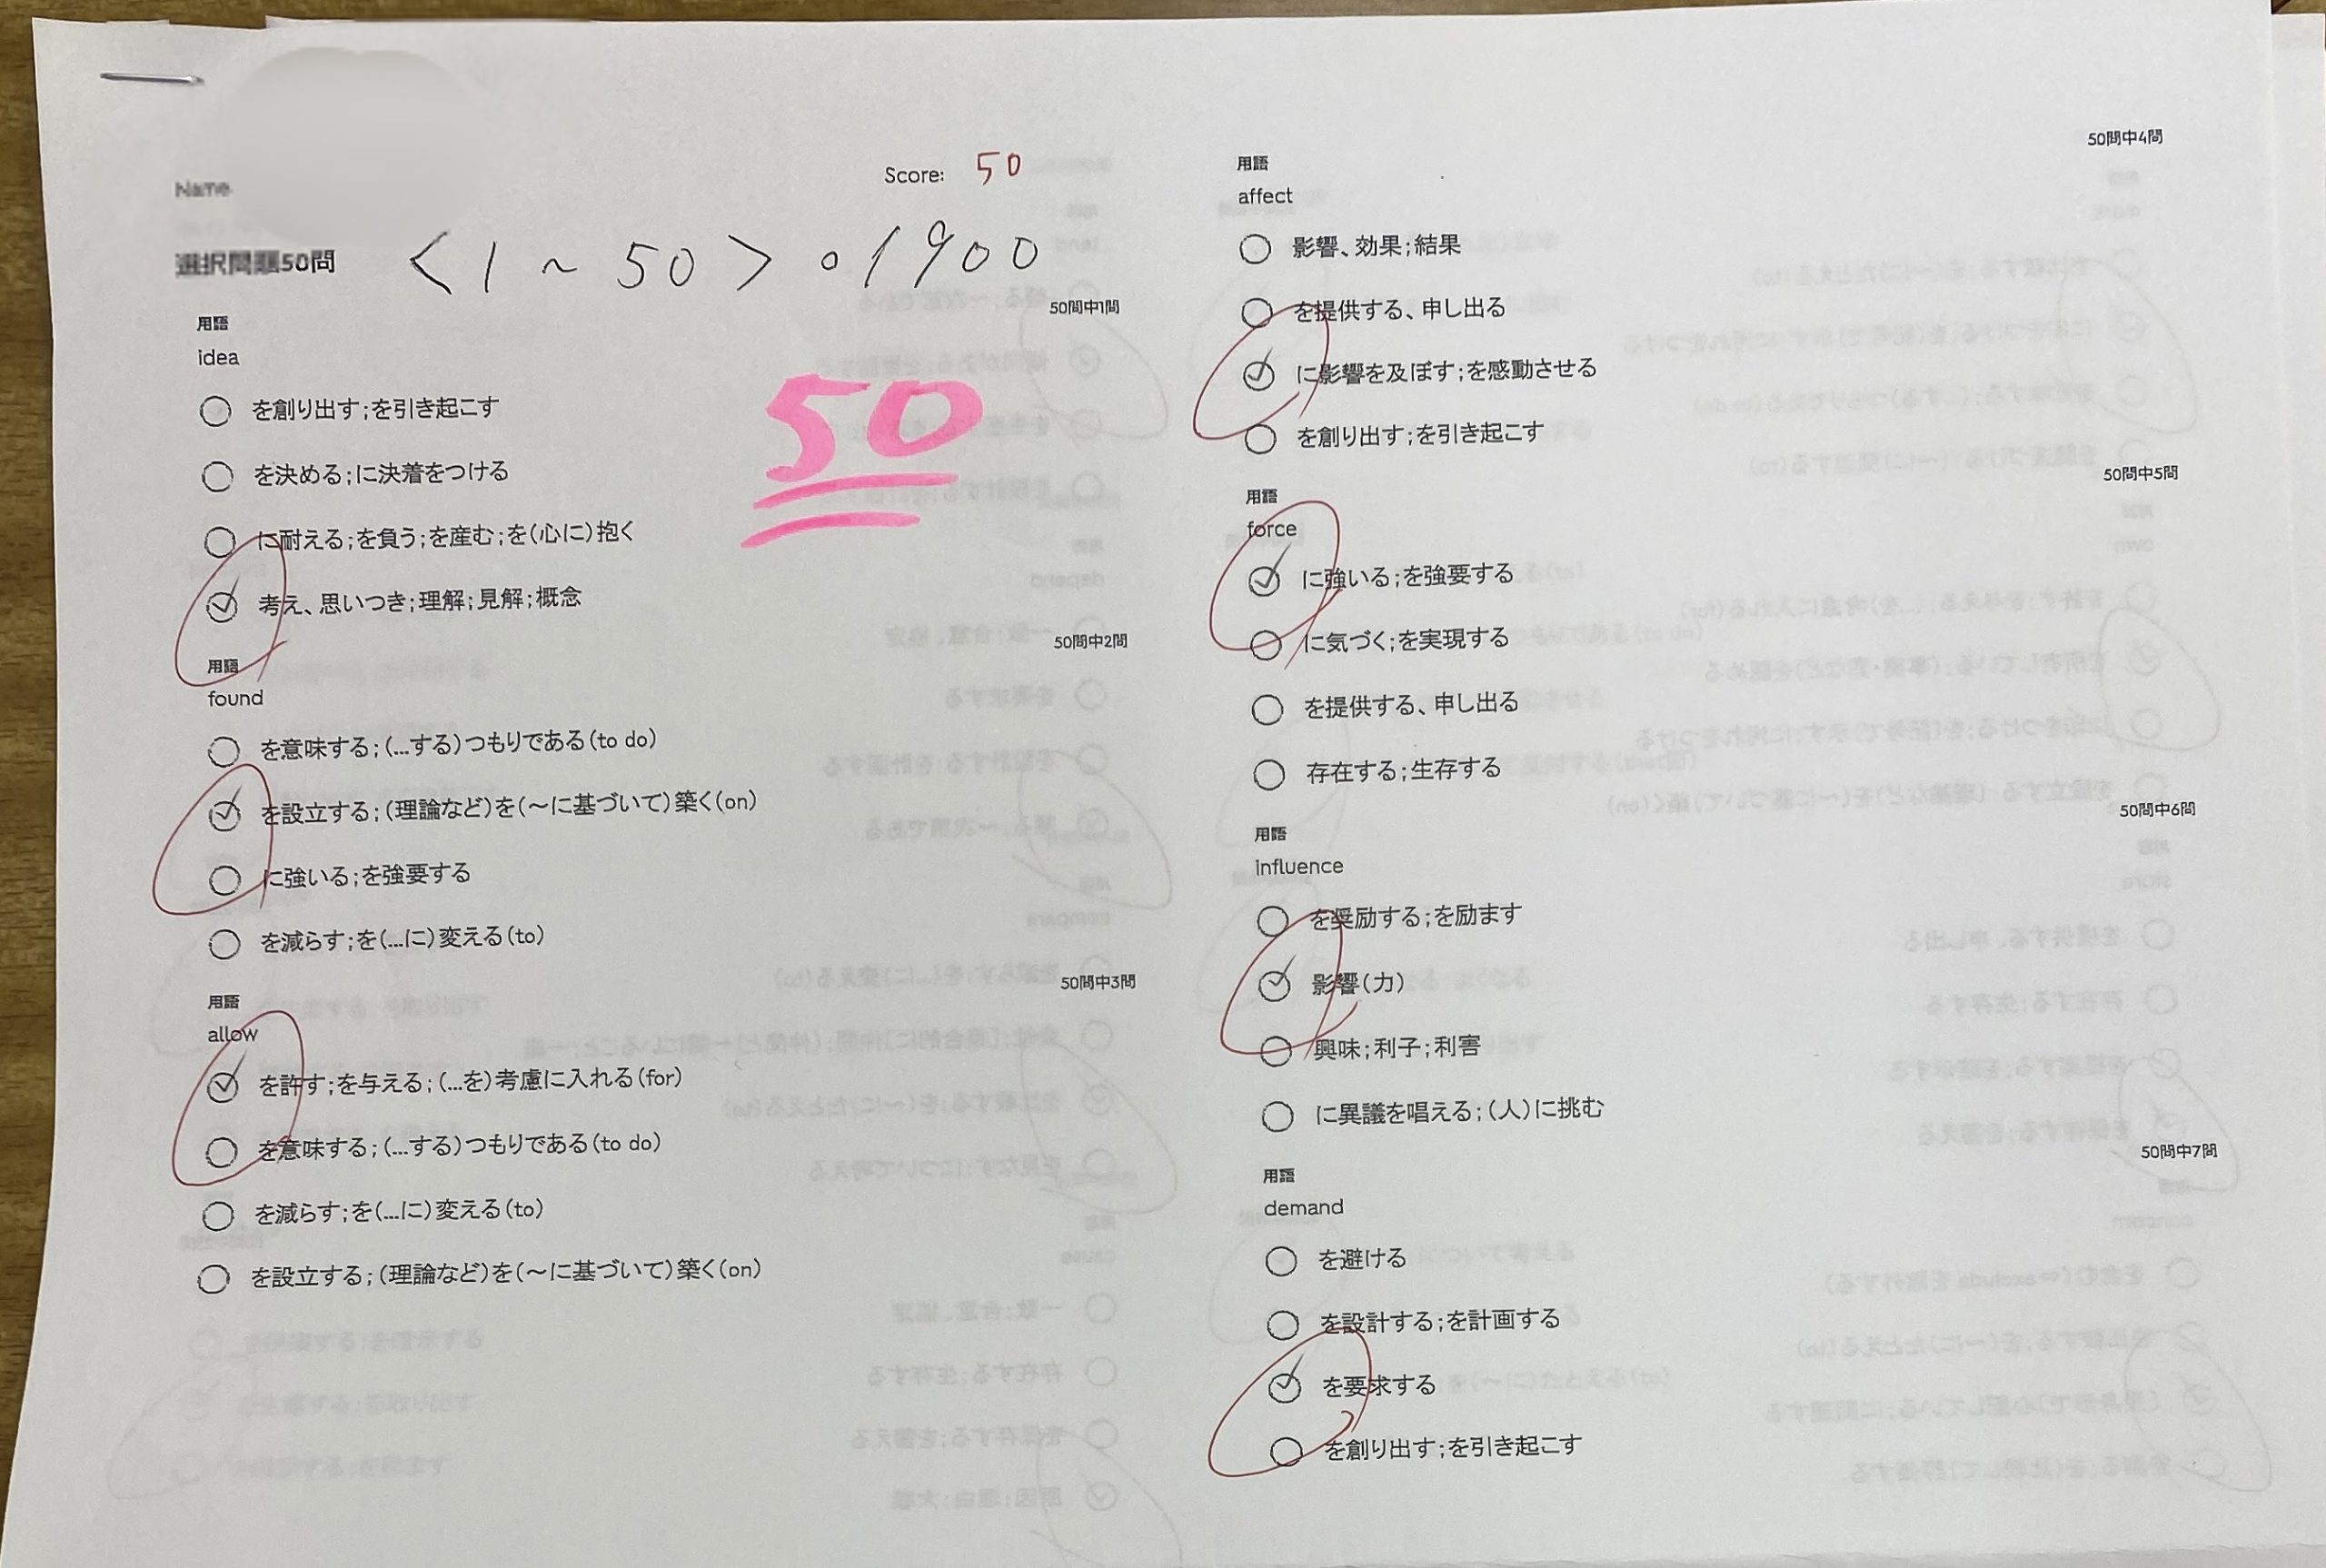 Name
Score: 50
選択問題50問 <1~50>。1900
50
50問中1問
用語
idea
を創り出す;を引き起こす
を決める;に決着をつける
に耐える;を負う;を産む;を(心に)抱く
考え、思いつき;理解;見解;概念
50問中2問
用語
found
を意味する;(…する)つもりである(to do)
を設立する;(理論など)を(～に基づいて)築く(on)
に強いる;を強要する
を減らす;を(…に)変える(to)
50問中3問
用語
allow
を許す;を与える;(…を)考慮に入れる(for)
を意味する;(…する)つもりである(to do)
を減らす;を(…に)変える(to)
を設立する;(理論など)を(～に基づいて)築く(on)
50問中4問
用語
affect
影響、効果;結果
を提供する、申し出る
に影響を及ぼす;を感動させる
を創り出す;を引き起こす
50問中5問
用語
force
に強いる;を強要する
に気づく;を実現する
を提供する、申し出る
存在する;生存する
50問中6問
用語
influence
を奨励する;を励ます
影響(力)
興味;利子;利害
に異議を唱える;(人)に挑む
50問中7問
用語
demand
を避ける
を設計する;を計画する
を要求する
を創り出す;を引き起こす